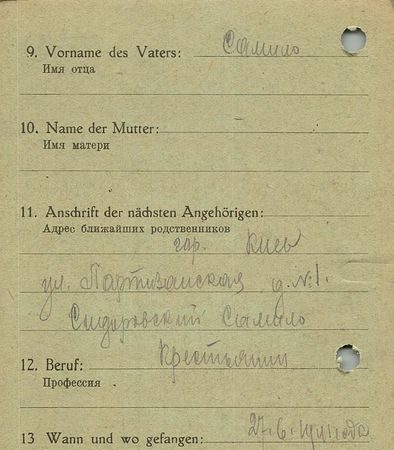 9. Vorname des Vaters: Самило
Имя отца
10. Name der Mutter:
Имя матери
11. Anschrift der nächsten Angehörigen:
Адрес ближайших родственников
гор. Киев
ул. Партизанская д. №1.
Сидоровский Самило
12. Beruf: Крестьянин
Профессия
13 Wann und wo gefangen: 27.6.1941 года